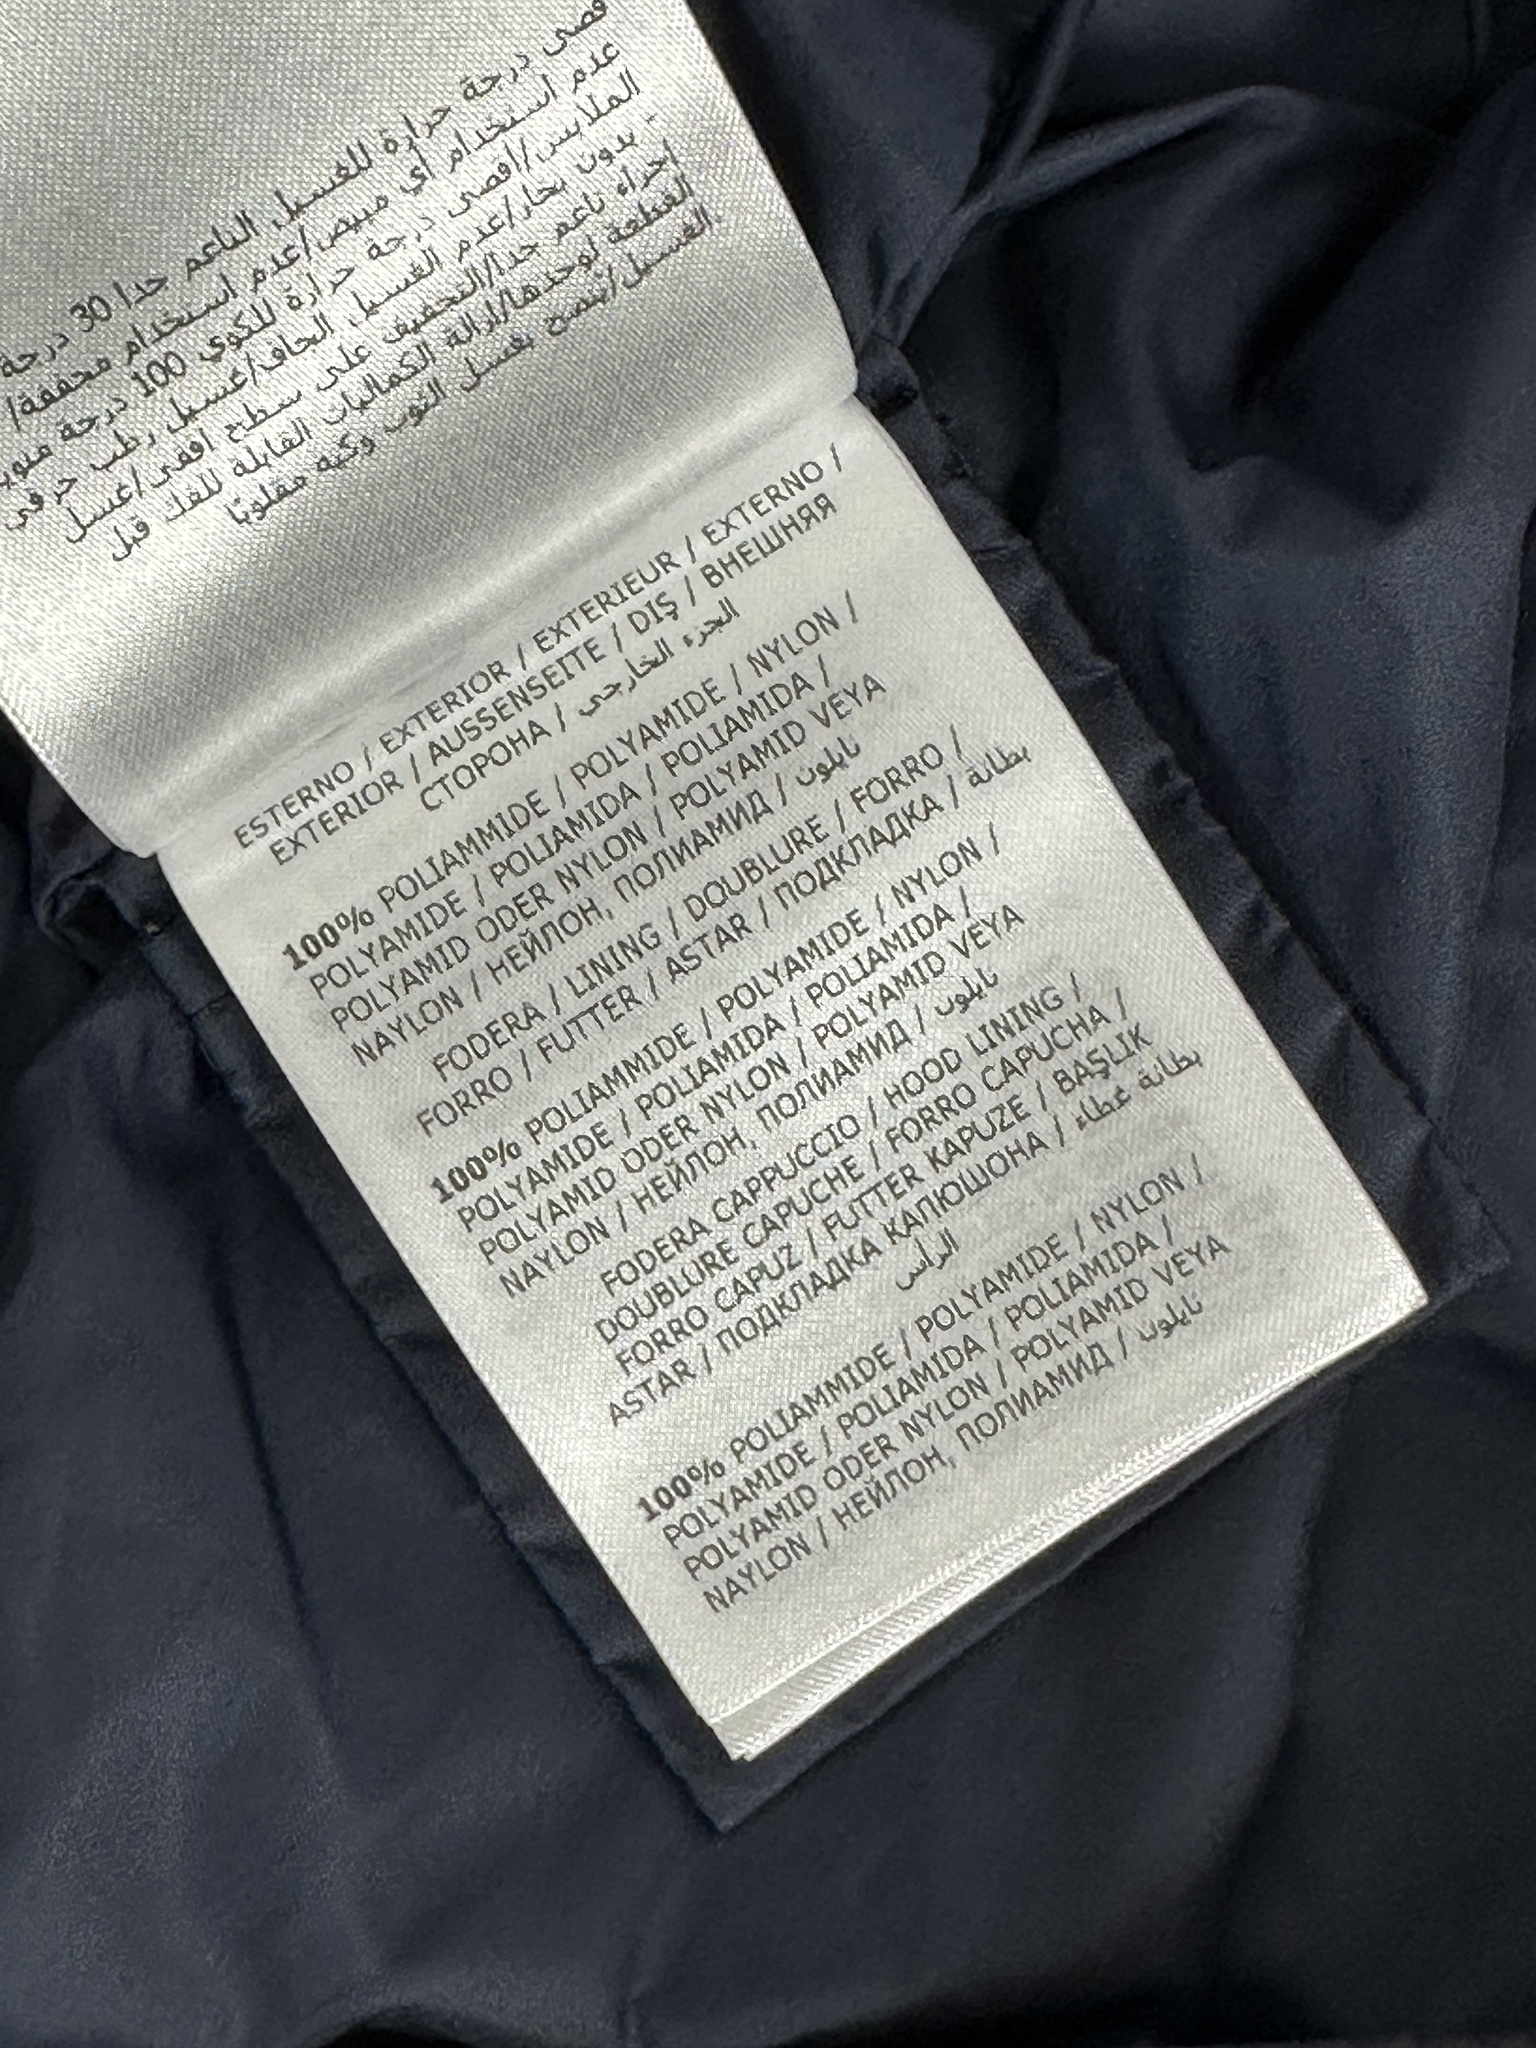 قصى درجة حرارة للغسيل الناعم جدا 30 درجة
عدم استخدام أي مبيض/عدم استخدام مجففة/
الملابس/أقصى درجة حرارة للكوي 100 درجة مئوية
- بدون بخار/عدم الغسيل الجاف/غسيل رطب حرفي
إجراء ناعم جدا/التجفيف على سطح افقي/غسل
القطعة لوحدها/إزالة الكماليات القابلة للفك قبل
الغسيل/ينصح بغسل الثوب وكيه مقلوبًا.
ESTERNO / EXTERIOR / EXTERIEUR / EXTERNO /
EXTERIOR / AUSSENSEITE / DIŞ / ВНЕШНЯЯ
СТОРОНА / الجزء الخارجي
100% POLIAMMIDE / POLYAMIDE / NYLON /
POLYAMIDE / POLIAMIDA / POLIAMIDA /
POLYAMID ODER NYLON / POLYAMID VEYA
NAYLON / НЕЙЛОН, ПОЛИАМИД / نايلون
FODERA / LINING / DOUBLURE / FORRO /
FORRO / FUTTER / ASTAR / ПОДКЛАДКА / بطانة
100% POLIAMMIDE / POLYAMIDE / NYLON /
POLYAMIDE / POLIAMIDA / POLIAMIDA /
POLYAMID ODER NYLON / POLYAMID VEYA
NAYLON / НЕЙЛОН, ПОЛИАМИД / نايلون
FODERA CAPPUCCIO / HOOD LINING /
DOUBLURE CAPUCHE / FORRO CAPUCHA /
FORRO CAPUZ / FUTTER KAPUZE / BAŞLIK
ASTAR / ПОДКЛАДКА КАПЮШОНА / بطانة غطاء
الرأس
100% POLIAMMIDE / POLYAMIDE / NYLON /
POLYAMIDE / POLIAMIDA / POLIAMIDA /
POLYAMID ODER NYLON / POLYAMID VEYA
NAYLON / НЕЙЛОН, ПОЛИАМИД / نايلون